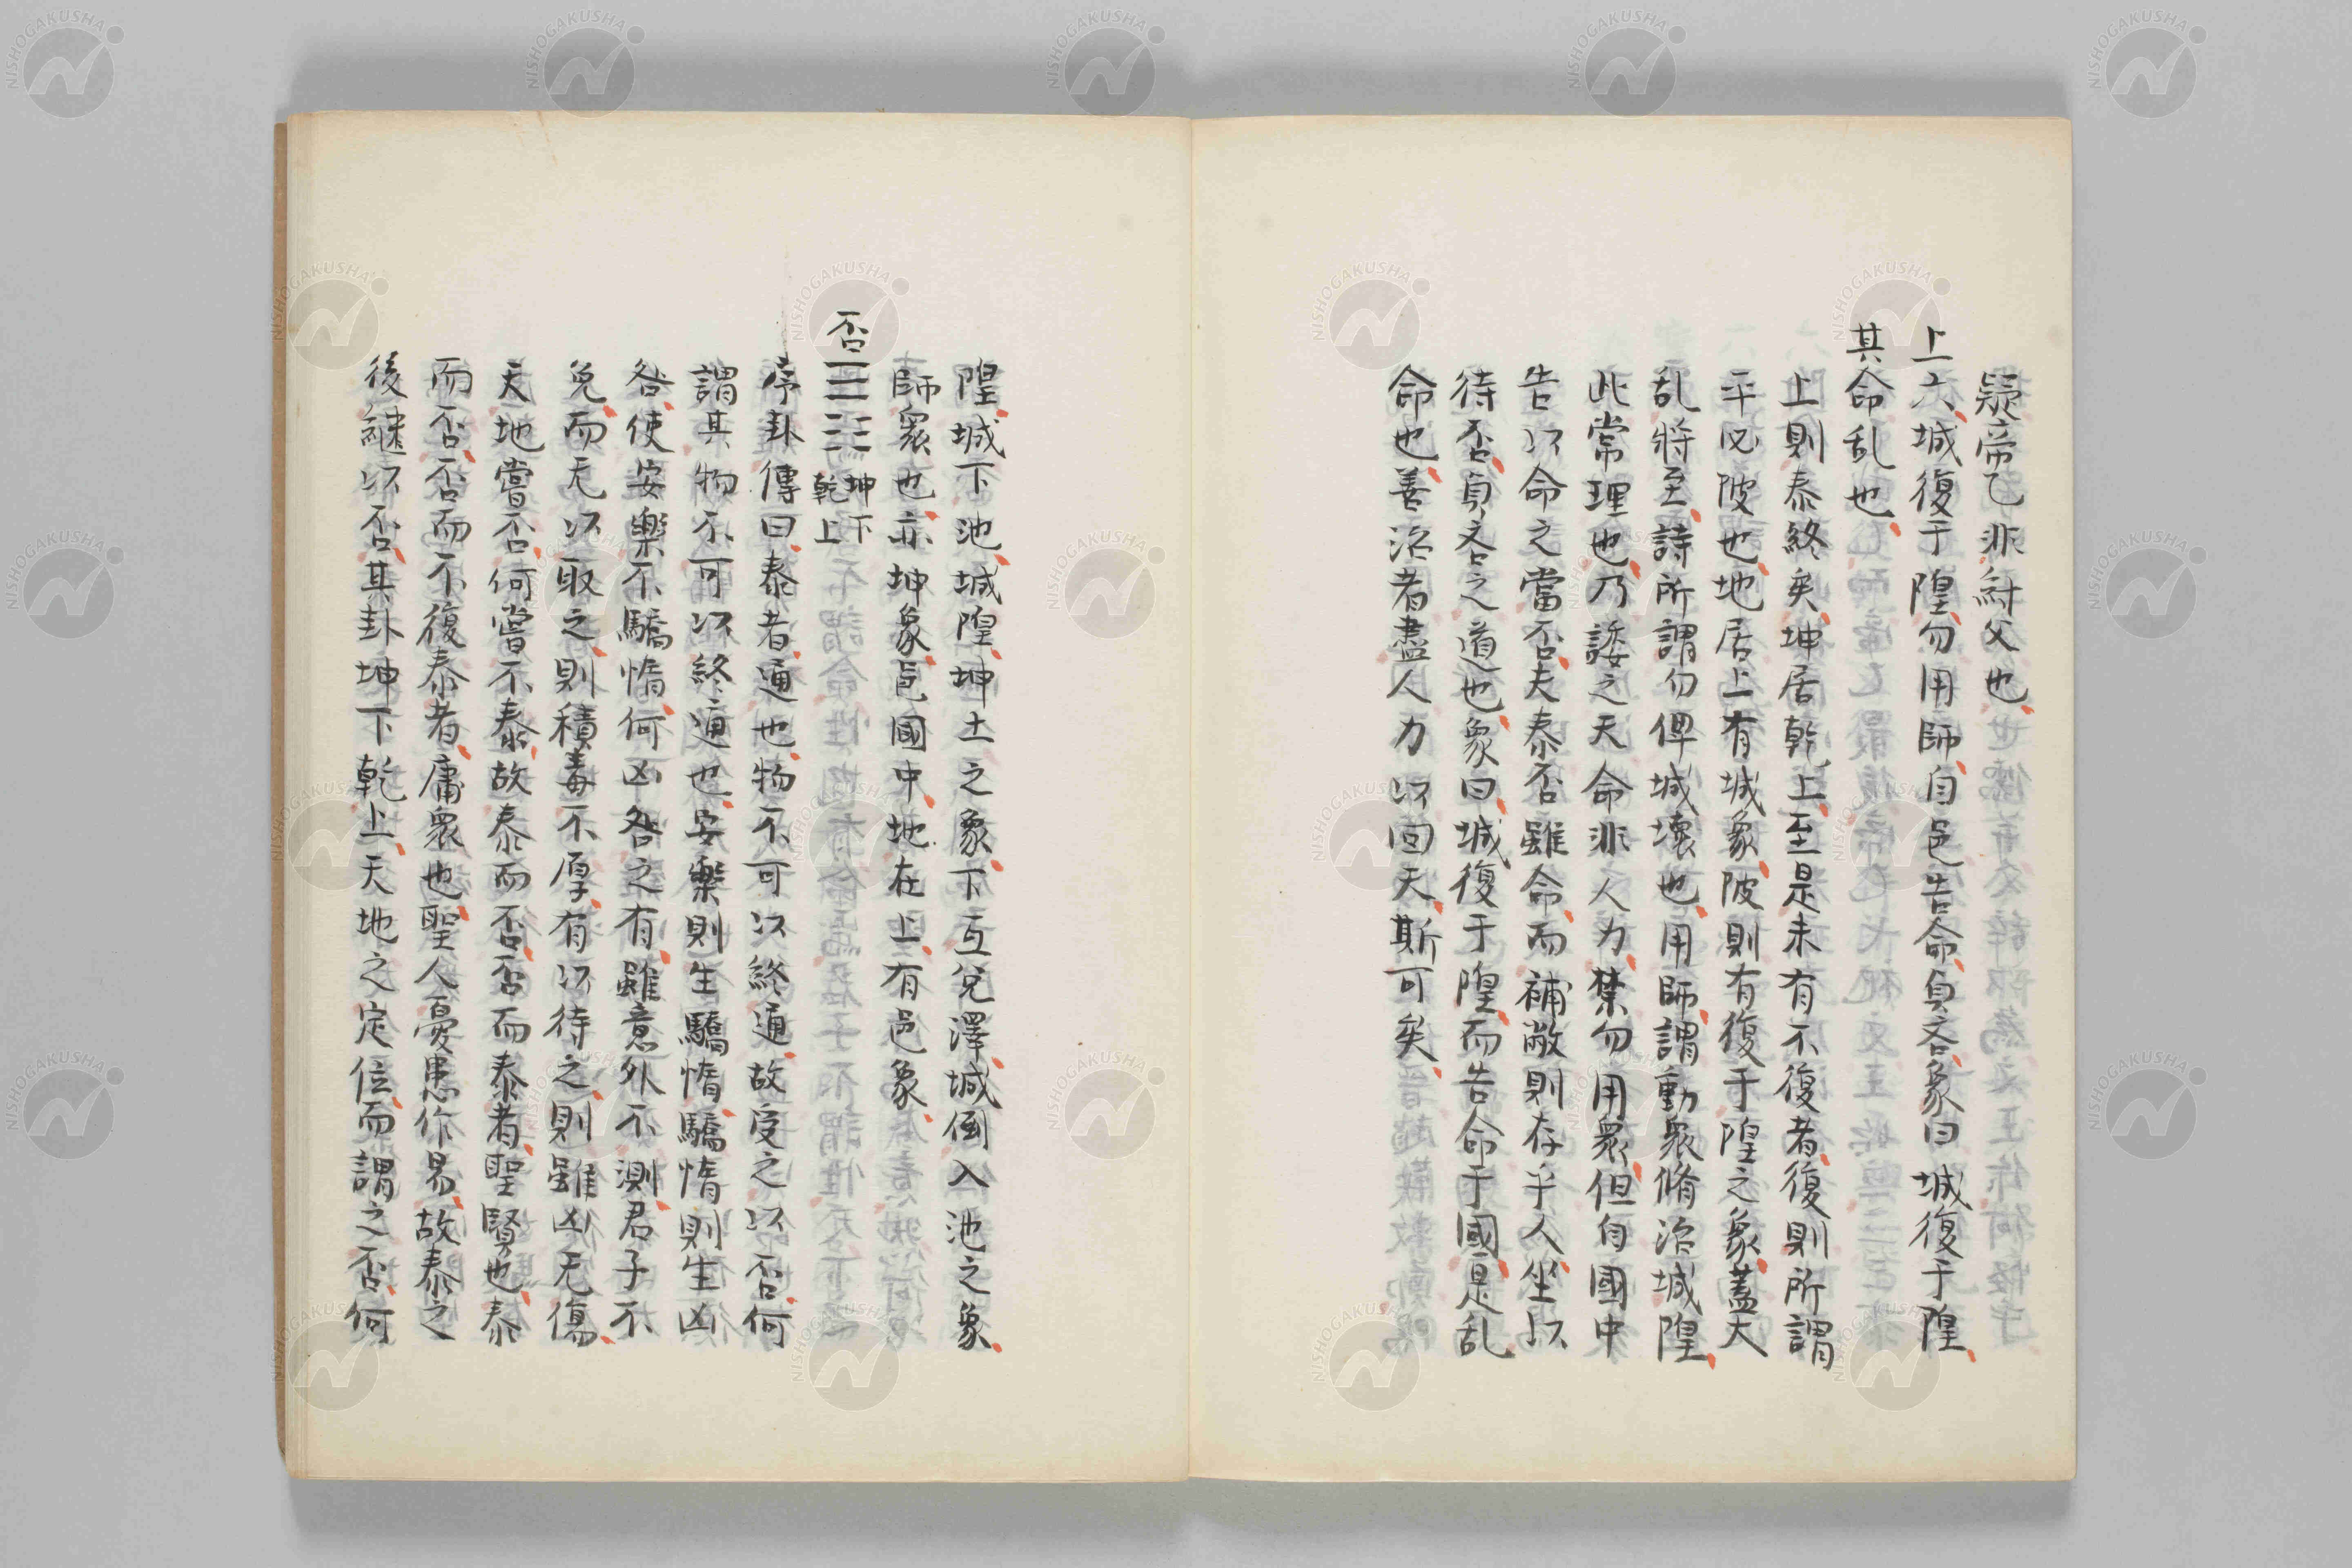 疑帝乙非紂父也
上六城復于隍勿用師自邑告命貞吝象曰城復于隍
其命乱也
上則泰終矣坤居乾上至是未有不復者復則所謂
平必陂也地居上有城象陂則有復于隍之象蓋大
乱将至詩所謂勿俾城壊也用師謂動衆脩治城隍
此常理也乃諉之天命非人力禁勿用衆但自國中
告以命之當否夫泰否雖命而補敝則存乎人坐以
待否貞吝之道也象曰城復于隍而告命于國是乱
命也善治者盡人力以回天斯可矣
隍城下池城隍坤土之象下互兌澤城倒入池之象
師衆也亦坤象邑國中地在上有邑象
否 坤下乾上
序卦傳曰泰者通也物不可以終通故受之以否何
謂其物不可以終通也安樂則生驕惰驕惰則生凶
咎使安樂不驕惰何凶咎之有雖意外不測君子不
免而无以取之則積毒不厚有以待之則雖凶无傷
天地嘗否何嘗不泰故泰而否否而泰者聖賢也泰
而否否而不復泰者庸衆也聖人憂患作易故泰之
後繼以否其卦坤下乾上天地之定位而謂之否何
NISHOGAKUSHA